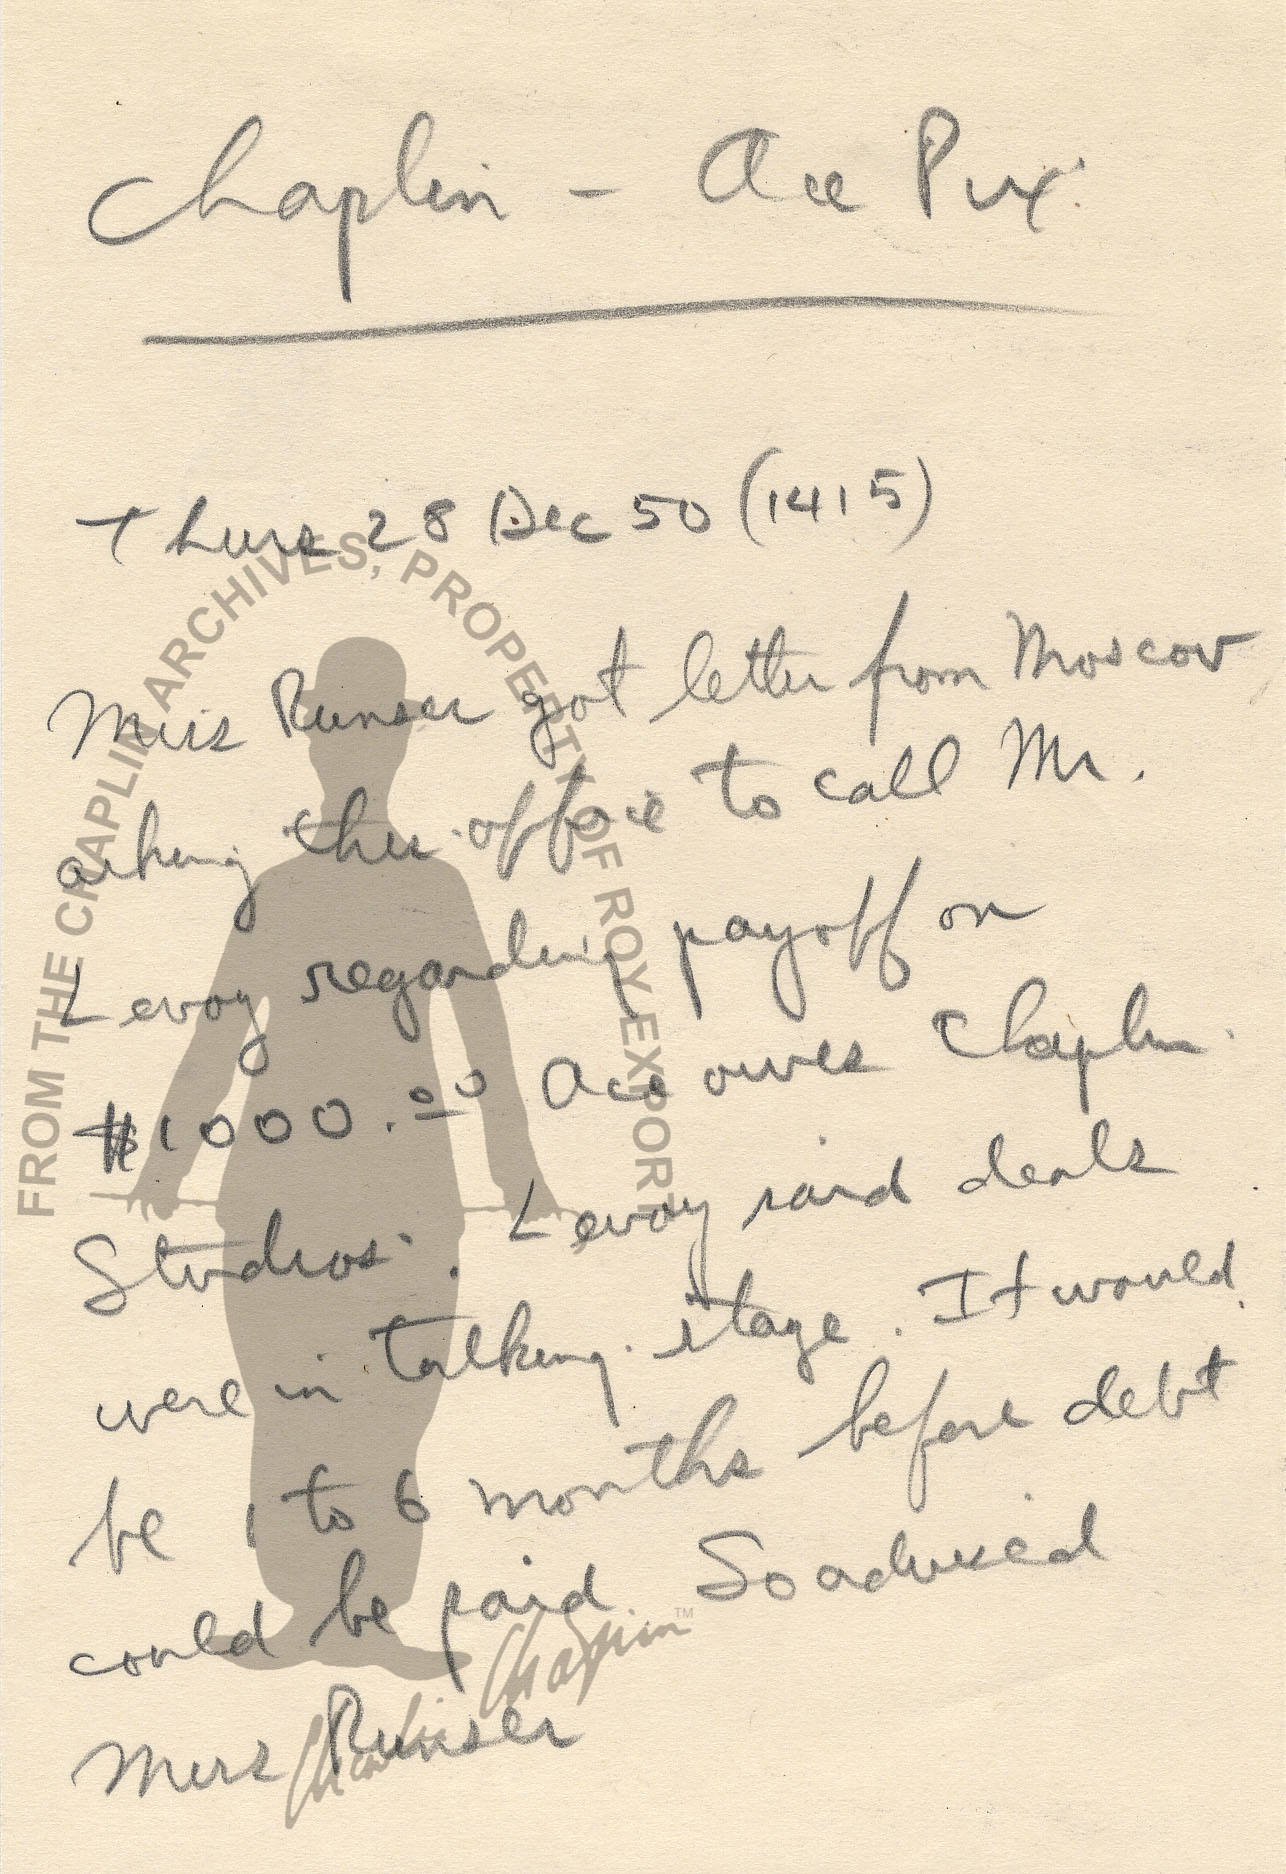 Chaplin - Ace Pix.
Thurs 28 Dec 50 (1415)
Miss Runser got letter from Moscov
asking this office to call Mr.
Levoy regarding payoff on
$1000.00 Ace owes Chaplin
Studios. Levoy said deals
were in talking stage. It would
be 1 to 6 months before debt
could be paid. So advised
Miss Runser
FROM THE CHAPLIN ARCHIVES, PROPERTY OF ROY EXPORT
Charlie Chaplin TM